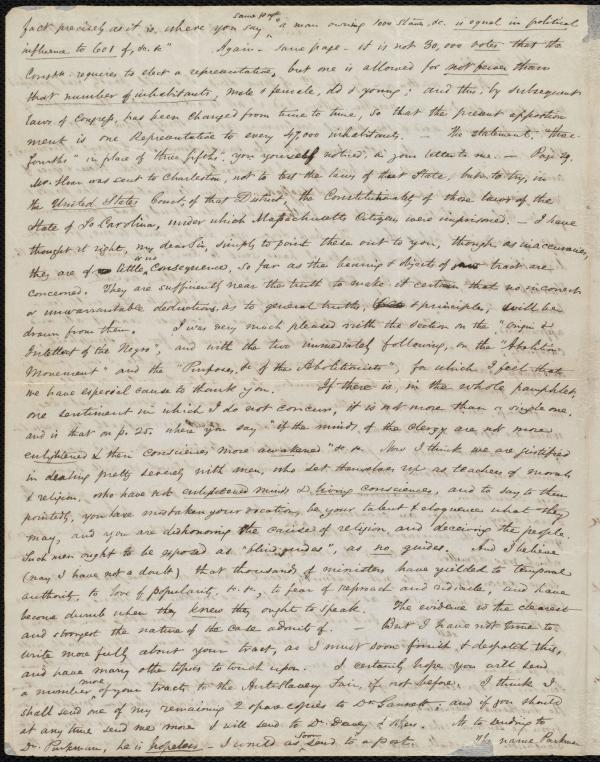 same page
fact precisely as it is, where you say "a man owning 1000 slaves, &c. is equal in political
influence to 601 of, &c. &" Again – same page – it is not 30,000 votes that the
Constn. requires to elect a representative, but one is allowed for not fewer than
that number of inhabitants, male & female, old & young; and this, by subsequent
laws of Congress, has been changed from time to time, so that the present apportion
ment is one Representative to every 47,000 inhabitants. – The statement, "three
fourths" in place of three fifths, you yourself noticed, in your letter to me. – Page 29.
Mr. Hoar was sent to Charleston, not to test the laws of that State, but to try, in
the United States Court, of that District, the Constitutionality of those laws of the
State of So Carolina, under which Massachusetts Citizens were imprisoned. – I have
thought it right, my dear Sir, simply to point these out to you, though, as inaccuracies,
they are of little or no consequence, so far as the bearing & objects of your tract are
concerned. They are sufficiently near the truth to make it certain that no incorrect
or unwarrantable deductions, as to general truths, & principles, will be
drawn from them. I was very much pleased with the section on the "Origin &
Intellect of the Negro", and with the two immediately following, on the "Abolition
Movement" and the "Purposes, &c of the Abolitionists", for which I feel that
we have especial cause to thank you. If there is, in the whole pamphlet,
one sentiment in which I do not concur, it is not more than a single one,
and is that on p. 25. where you say "if the minds of the clergy are not more
enlightened & their consciences more awakened" &c &c. Now I think we are justified
in dealing pretty severely with men, who set themselves up as teachers of morals
& religion, who have not enlightened minds & living consciences, and to say to them
pointedly, you have mistaken your vocation, be your talent & eloquence what they
may, and you are dishonoring the cause of religion and deceiving the people.
Such men ought to be exposed as "blind guides", as no guides. And I believe
(nay I have not a doubt) that thousands of ministers have yielded to temporal
authority, to love of popularity, &c. &c., to fear of reproach and ridicule, and have
become dumb when they knew they ought to speak. The evidence is the clearest
and strongest the nature of the case admits of. – But I have not time to
write more fully about your tract, as I must soon finish & despatch this,
and have many other topics to touch upon. I certainly hope you will send
a number more of your tracts to the Anti-Slavery Fair, if not before. I think I
shall send one of my remaining 2 spare copies to Dr Gannett; and if you should
at any time send me more I will send to Dr. Dewey & others. As to sending to
Dr. Parkman, he is hopeless – I would as soon send to a post. name Parkman